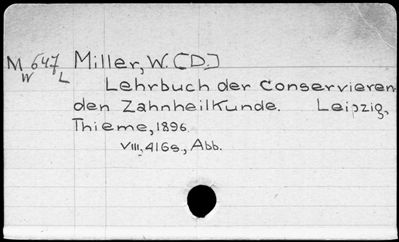 M W647 L Miller, W. [D.]
Lehrbuch der Conservieren-
den Zahnheilkunde. Leipzig,
Thieme, 1896
VIII, 416s, Abb.